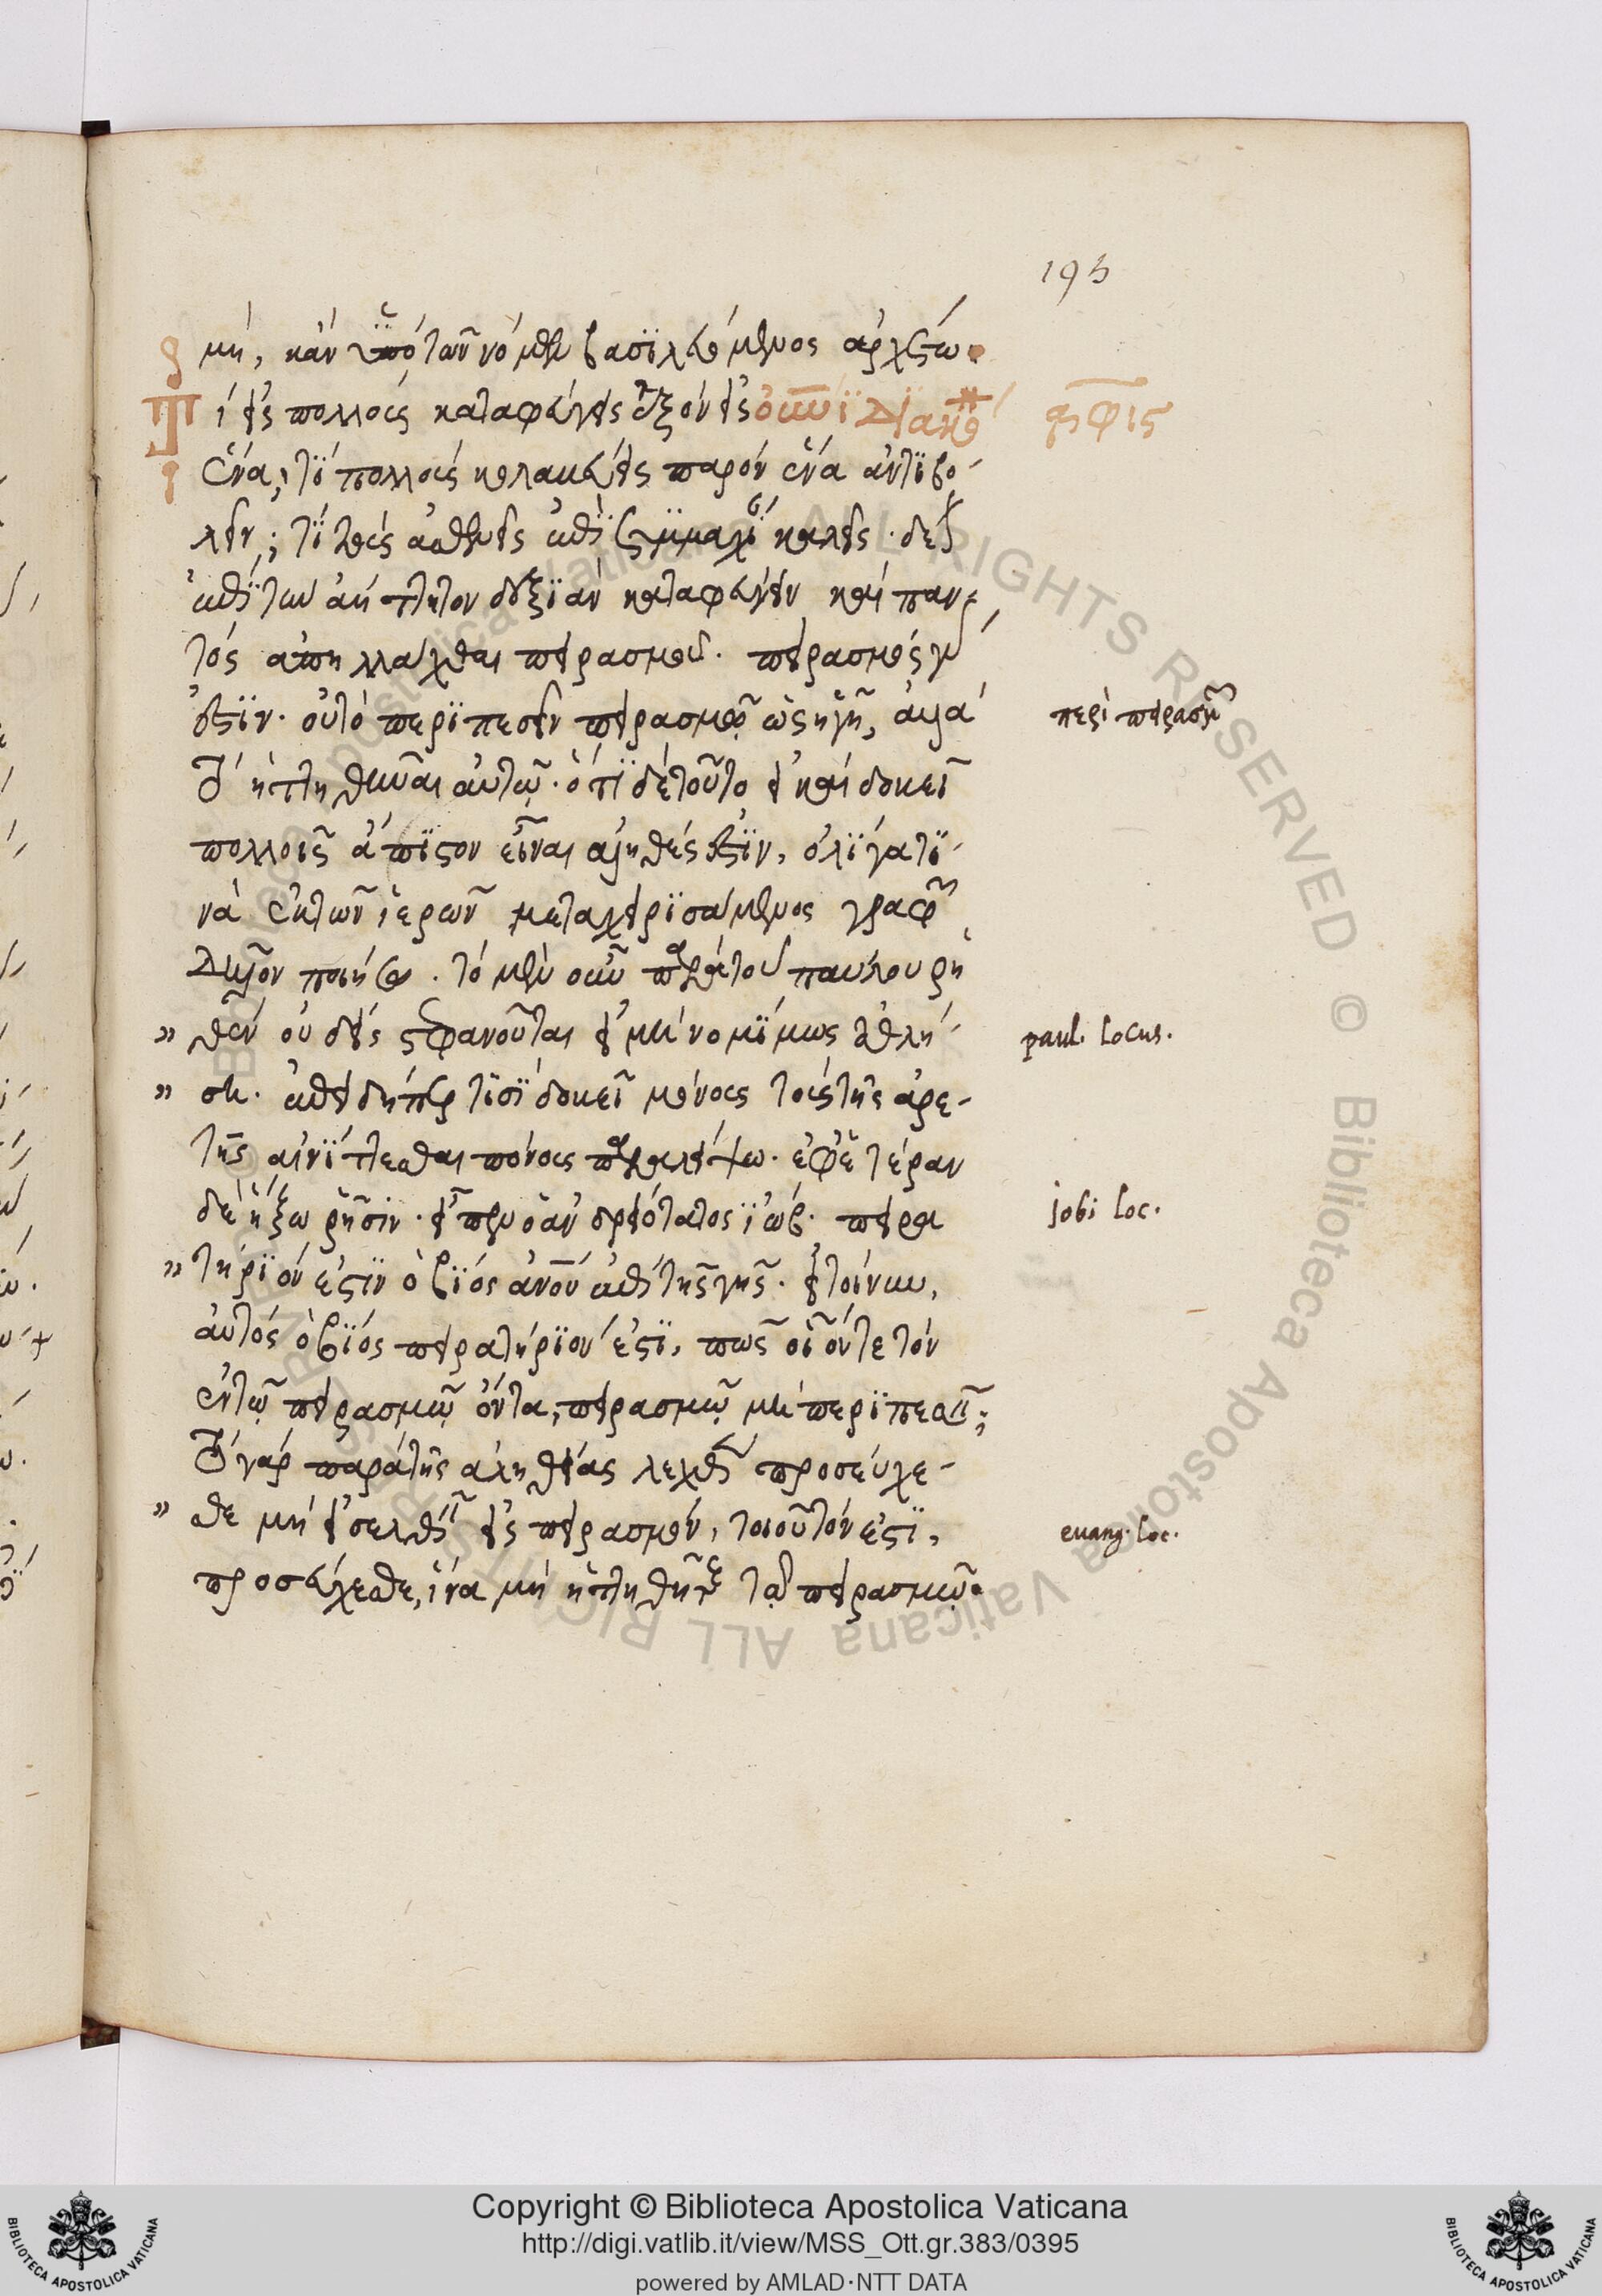 193
μή, κἂν ὑπὸ τῶν νόμων βασιλευόμενος ἀρχέτω.
Τί εἰς πολλοὺς καταφεύγεις ἐξὸν εἰς
ἕνα; τί πολλοὺς κολακεύεις παρὸν ἕνα ἀντιβο-
λεῖν; τί τοὺς ἀσθενεῖς ἐπὶ συμμαχίαν καλεῖς. δέον
ἐπὶ τὴν ἀήττητον δεξιὰν καταφυγεῖν καὶ παν-
τὸς ἀπηλλάχθαι πειρασμοῦ. πειρασμὸς γάρ
ἐστιν. οὐ τὸ περιπεσεῖν πειρασμῷ ὡς ἡγῇ, ἀλλὰ
περὶ πειρασμοῦ
τὸ ἡττηθῆναι αὐτῷ. ὅτι δὲ τοῦτο εἰ καὶ δοκεῖ
πολλοῖς ἄπιστον εἶναι ἀληθές ἐστιν, ὀλίγα τι-
νὰ ἐκ τῶν ἱερῶν μεταχειρισάμενος γραφῶν
δῆλον ποιήσω. τὸ μὲν οὖν παρὰ τοῦ παύλου ῥη
" θὲν οὐδεὶς στεφανοῦται εἰ μὴ νομίμως ἀθλή-
paul. locus.
" σῃ. ἐπειδήπερ τισὶ δοκεῖ μόνους τοὺς τῆς ἀρε-
τῆς αἰνίττεσθαι πόνους παραλείψω. ἐφ' ἑτέραν
δὲ ἥξω ῥῆσιν. εἶπεν ὁ ἀνδρειότατος ἰώβ. πειρα
jobi loc.
" τήριόν ἐστιν ὁ βίος ἀνου ἐπὶ τῆς γῆς. εἰ τοίνυν,
αὐτὸς ὁ βίος πειρατήριόν ἐστι, πῶς οἷόν τε τὸν
ἐν τῷ πειρασμῷ ὄντα, πειρασμῷ μὴ περιπεσεῖν;
τὸ γὰρ παρὰ τῆς ἀληθείας λεχθὲν προσεύχε-
" σθε μὴ εἰσελθεῖν εἰς πειρασμόν, τοιοῦτόν ἐστι,
euang. loc.
προσεύχεσθε, ἵνα μὴ ἡττηθῆτε τῷ πειρασμῷ.
Copyright © Biblioteca Apostolica Vaticana
http://digi.vatlib.it/view/MSS_Ott.gr.383/0395
powered by AMLAD·NTT DATA
BIBLIOTECA APOSTOLICA VATICANA
BIBLIOTECA APOSTOLICA VATICANA
© Biblioteca Apostolica Vaticana ALL RIGHTS RESERVED